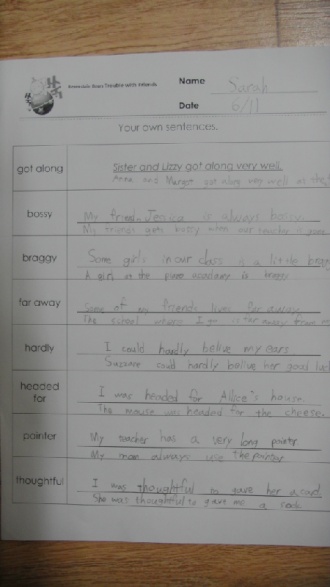 Berenstain Bears Trouble with Friends
Name Sarah
Date 6/11
Your own sentences.
got along
Sister and Lizzy got along very well.
and Margo got along very well
bossy
My friend Jessica is always bossy.
My friends gets bossy when our teacher is gone
braggy
Some girls in our class is a little bragg
A girl in the piano academy is braggy
far away
Some of my friends lives far away.
The school where I far away from
hardly
I could hardly belive my ears
Suzanne could hardly belive her good
headed for
I was headed for Allice's house.
The mouse was headed for the cheese.
pointer
My teacher has a very long pointer.
My mom always use the pointer
thoughtful
I was thoughtful to gave her a card.
She was thoughtful to gave me a